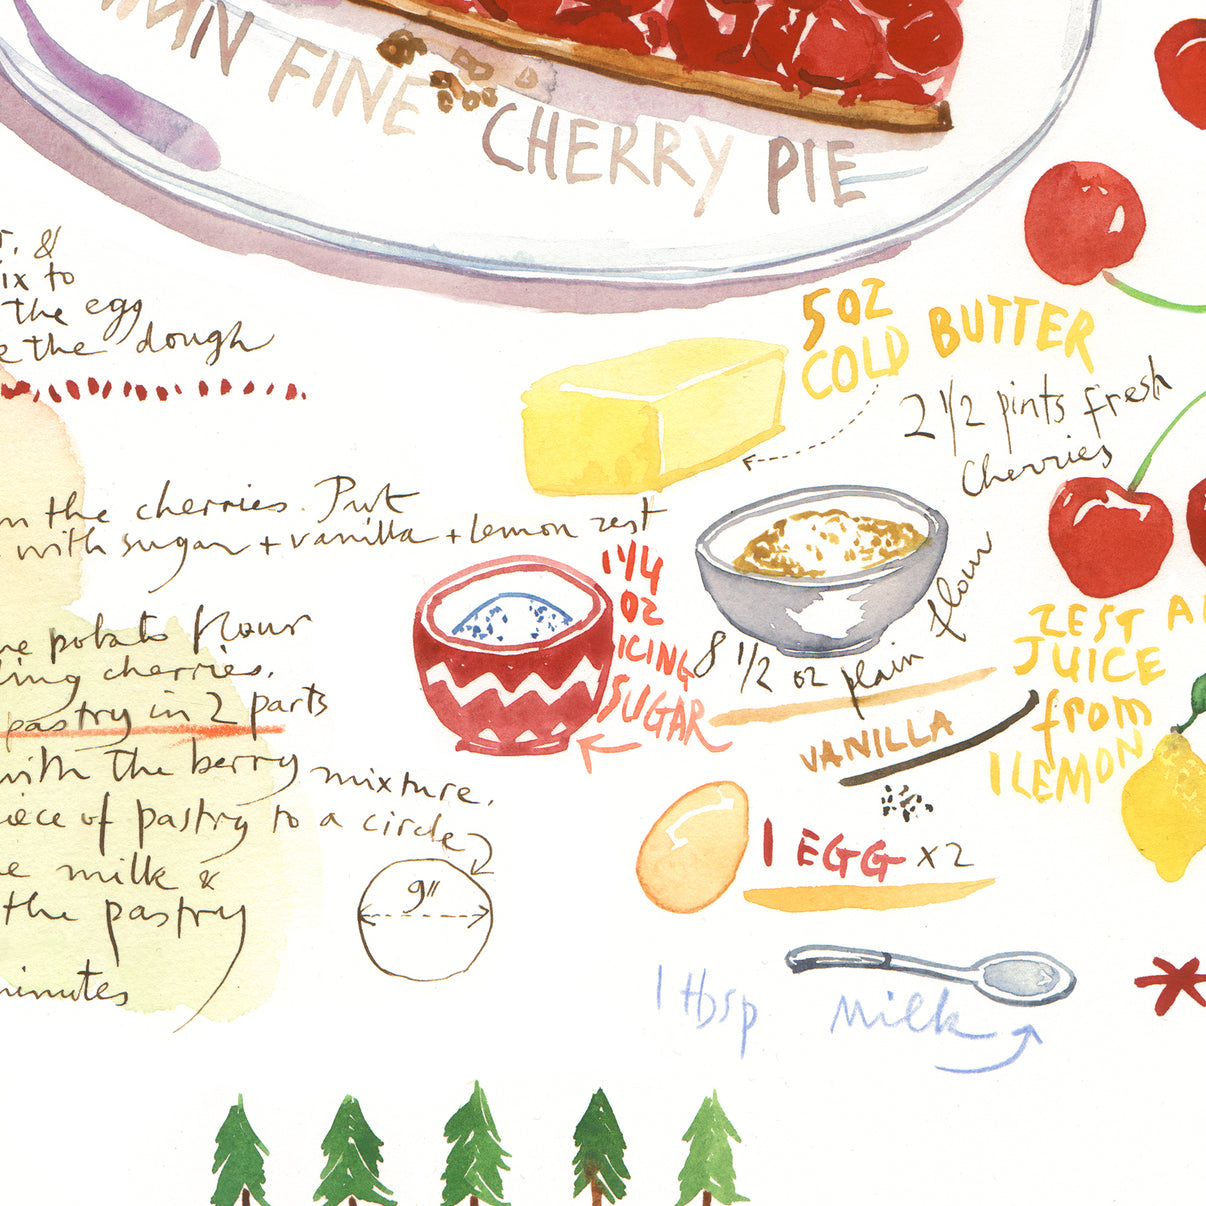 FINE CHERRY PIE
&
the egg
the dough
the cherries. Put
with sugar + vanilla + lemon zest
potato flour
cherries.
pastry in 2 parts
with the berry mixture.
of pastry to a circle
milk &
the pastry
minutes
9"
5 OZ
COLD BUTTER
2 1/2 pints fresh
Cherries
1 1/4
OZ
ICING
SUGAR
8 1/2 oz plain flour
ZEST
JUICE
from
1 LEMON
VANILLA
1 EGG x 2
1 tbsp milk